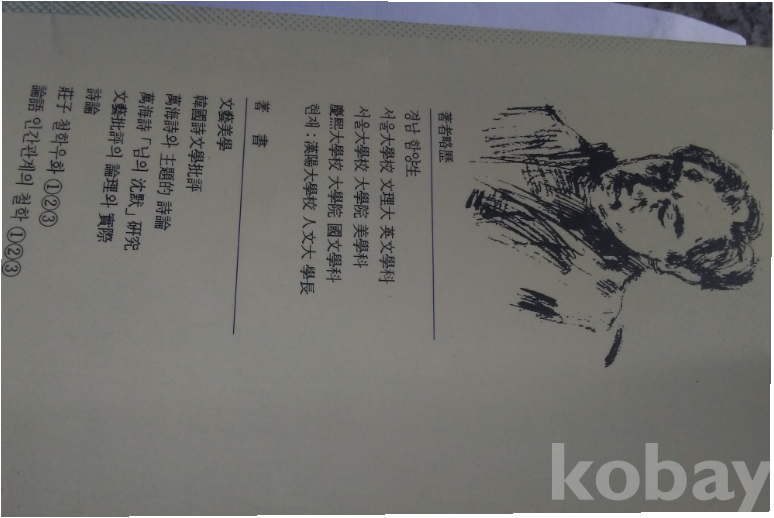 著者略歷
경남 함양生
서울大學校 文理大 英文學科
서울大學校 大學院 美學科
慶熙大學校 大學院 國文學科
현재 : 漢陽大學校 人文大 學長
著 書
文藝美學
韓國詩文學批評
萬海詩와 主題的 詩論
萬海詩「님의 沈默」硏究
文藝批評의 論理와 實際
詩論
莊子 철학우화 ①②③
論語 인간관계의 철학 ①②③
kobay